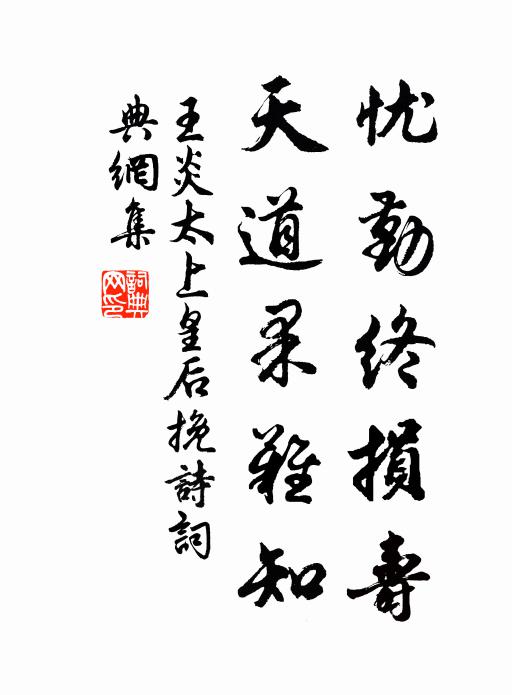 忧勤终損壽
天道果難知
王炎太上皇后挽詩詞
典網集
詞典网印